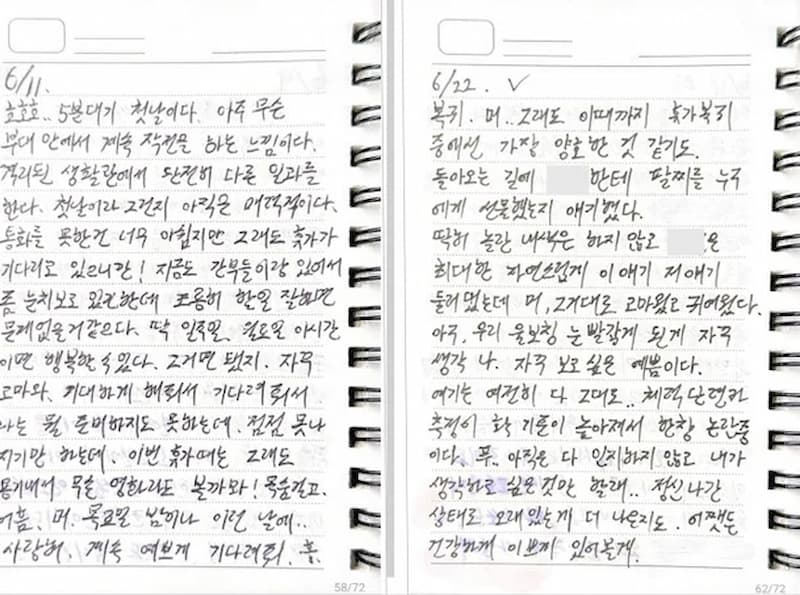 6/11.
호호호.. 5분대기 첫날이다. 아주 무슨
부대 안에서 계속 작전을 하는 느낌이다.
격리된 생활관에서 완전히 다른 일과를
한다. 첫날이라 그런지 아직은 매력적이다.
통화를 못한건 너무 아쉽지만 그래도 휴가가
기다리고 있으니깐! 지금도 간부들이랑 있어서
좀 눈치보고 있긴한데 조용히 할일 잘하면
문제없을거같은다. 딱 일주일. 월요일 아시간
이면 행복할 수 있다. 그거면 됐지. 자꾸
고마와. 기대하게 해줘서 기다려줘서.
나는 뭘 준비하지도 못하는데. 점점 못나
지기만 하는데. 이번 휴가때는 그래도
용기내서 무슨 영화라도 볼까와! 목숨걸고.
어흠. 머. 목요일 밤이나 이런 날에..
사랑해, 계속 예쁘게 기다려줘. 흥.
58/72
6/22. ✓
복귀. 머.. 그래도 이때까지 휴가복귀
중에선 가장 양호한 것 같기도.
돌아오는 길에 한테 팔찌를 누구
에게 선물했는지 얘기했다.
딱히 놀란 내색은 하지 않고 은
최대한 자연스럽게 이얘기 저얘기
둘러댔는데 머, 그거대로 고마웠고 귀여웠다.
아주, 우리 울보찡 눈 빨갛게 된게 자꾸
생각 나. 자꾸 보고싶은 예쁨이다.
여기는 여전히 다 그대로.. 체력단련과
측정이 확 기준이 높아져서 한창 논란중
이다. 푸.. 아직은 다 인지하지 않고 내가
생각하고 싶은것만 할래.. 정신나간
상태로 오래있는게 더 나은지도. 어쨋든
건강하게 이쁘게 있어볼게.
62/72